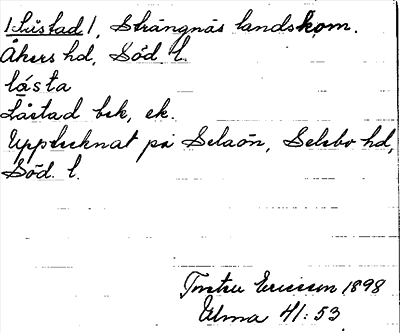 1 Låstad 1, Strängnäs landskom.
Åkers hd, Söd. l.
låsta
Låstad bsk, ek.
Upptecknat på Selaön, Selebo hd,
Söd. l.
Torsten Ericsson 1898
Ulma 41:53